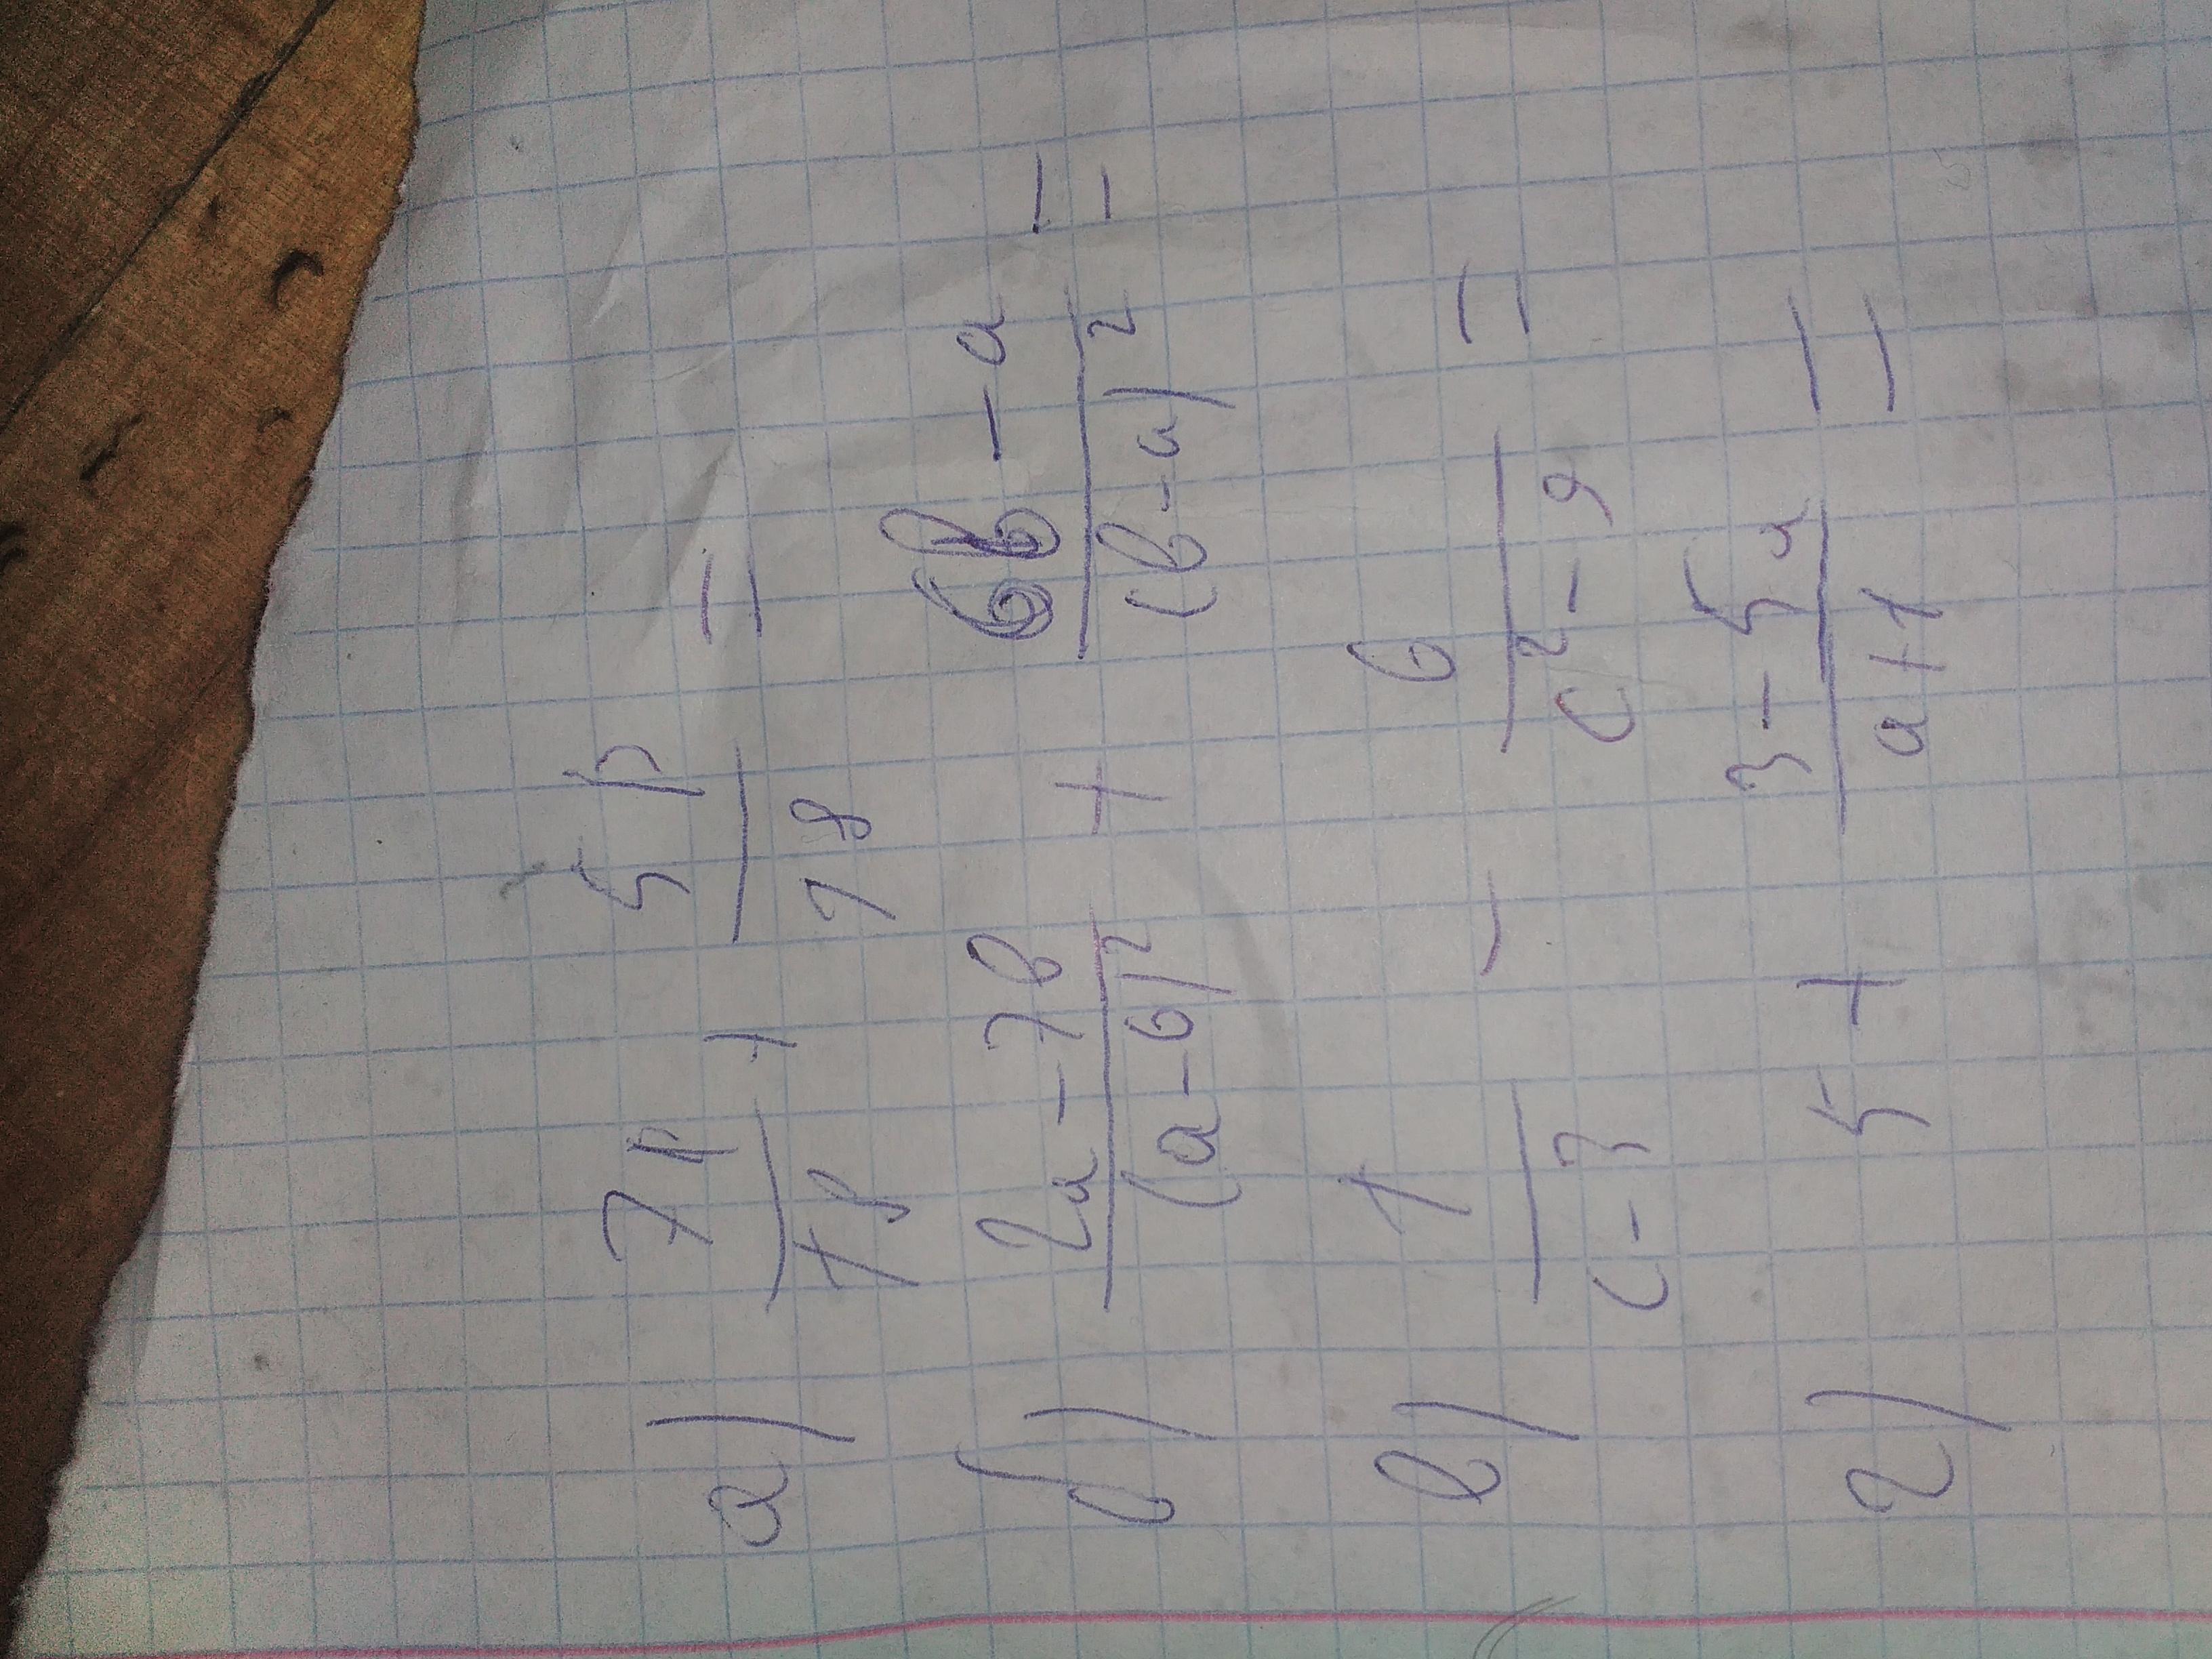 а) 7p/18 + 5p/18 =
б) (2a - 7b)/(a - b)² + (6b - a)/(b - a)² =
в) 1/(c - 3) - 6/(c² - 9) =
г) 5 + (3 - 5a)/(a + 1) =